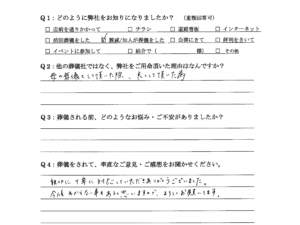 Q1：どのように弊社をお知りになりましたか？（重複回答可）
□ 店前を通りかかって □ チラシ □ 道路看板 □ インターネット
□ 前回葬儀をした □ 親戚/知人が葬儀をした □ 会葬にきて □ 評判をきいて
□ イベントに参加して □ 紹介で（ 様） □ その他
Q2：他の葬儀社ではなく、弊社をご用命頂いた理由はなんですか？
母の葬儀をして頂いた際、良くして頂いた為
Q3：葬儀される前、どのようなお悩み・ご不安がありましたか？
Q4：葬儀をされて、率直なご意見・ご感想をお聞かせください。
親切に、丁寧に対応していただきありがとうございました。
今后わからない事もあると思いますので、よろしくお願いします。